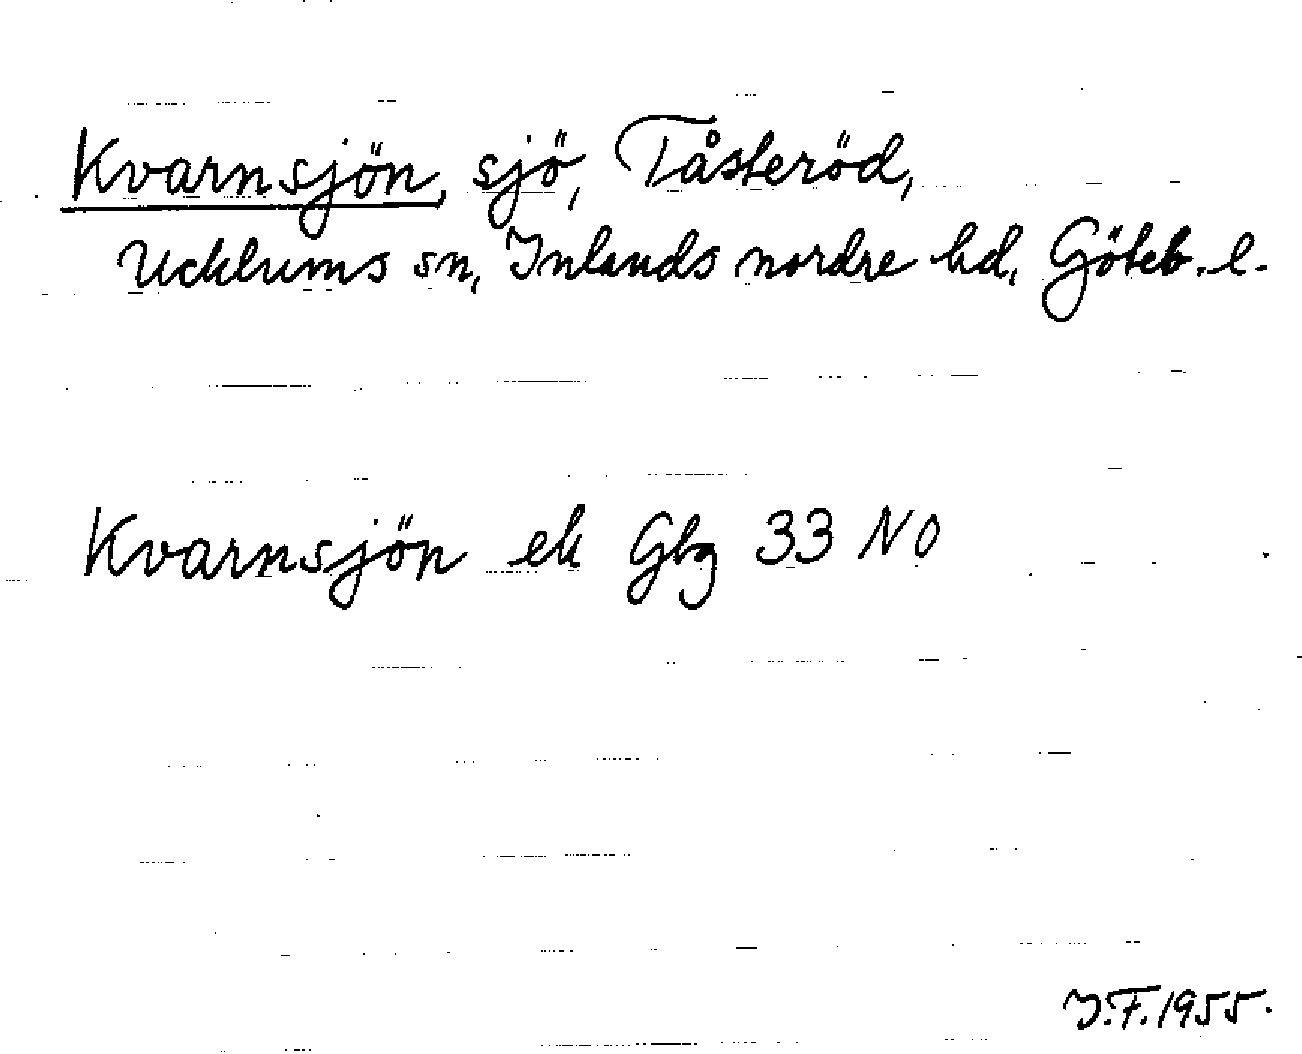 Kvarnsjön, sjö, Tåsteröd,
Ucklums sn, Inlands nordre hd, Göteb. l.
Kvarnsjön ek Gbg 33 NO
I.F. 1955.